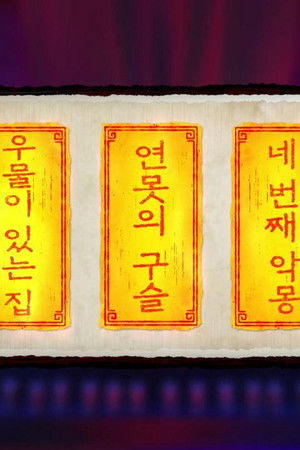 우물이 있는 집
연못의 구슬
네 번째 악몽